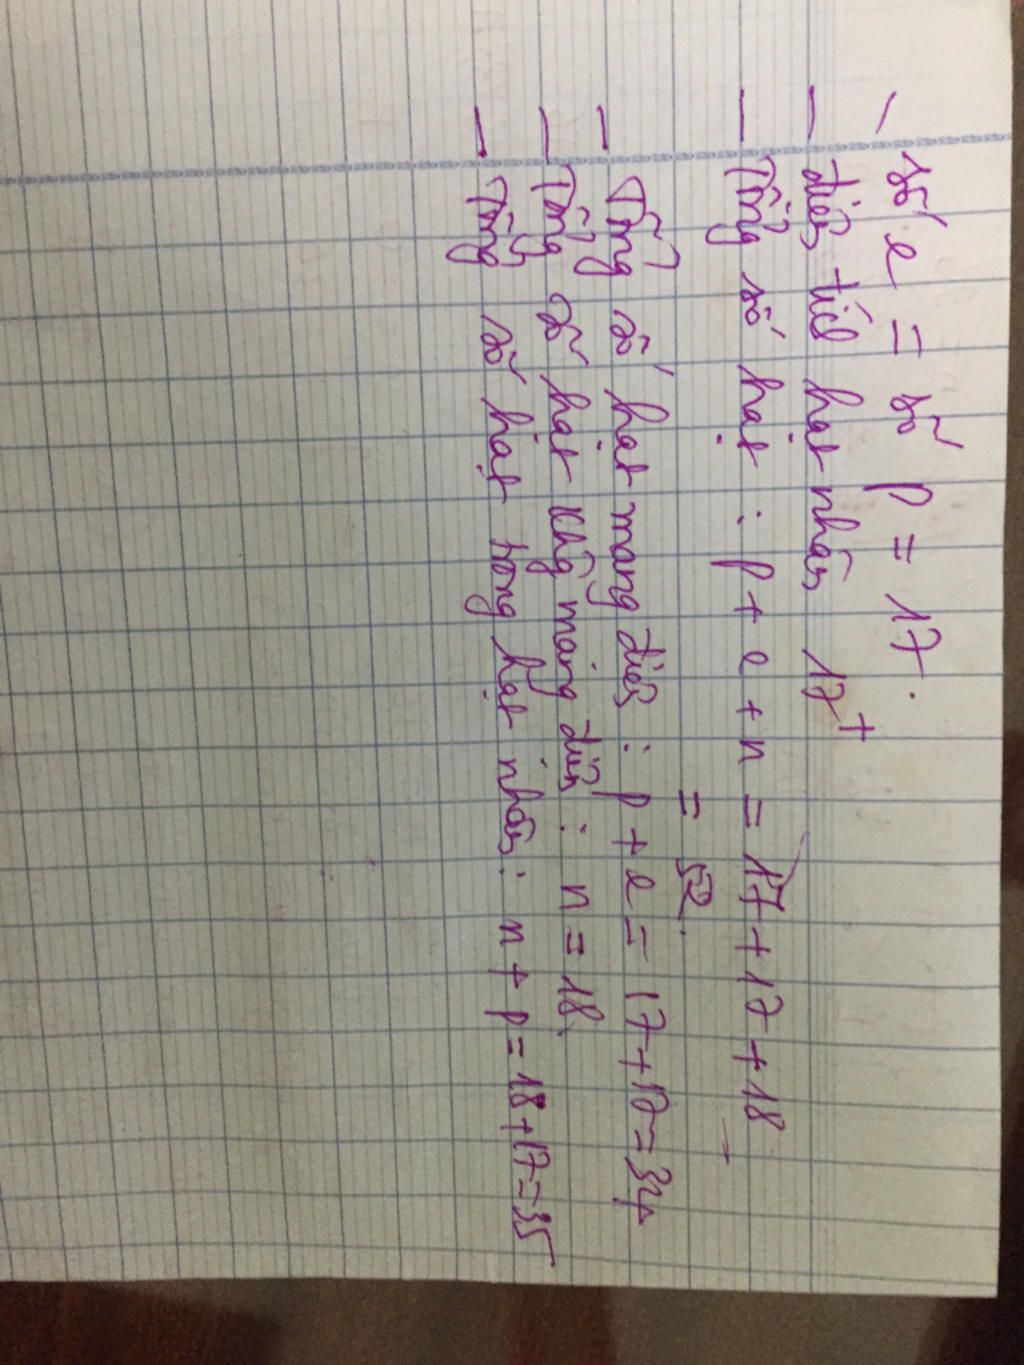 - Số e = số p = 17.
- điện tích hạt nhân 17+
- Tổng số hạt : p + e + n = 17 + 17 + 18
= 52.
- Tổng số hạt mang điện : p + e = 17 + 17 = 34
- Tổng số hạt không mang điện : n = 18.
- Tổng số hạt trong hạt nhân : n + p = 18 + 17 = 35